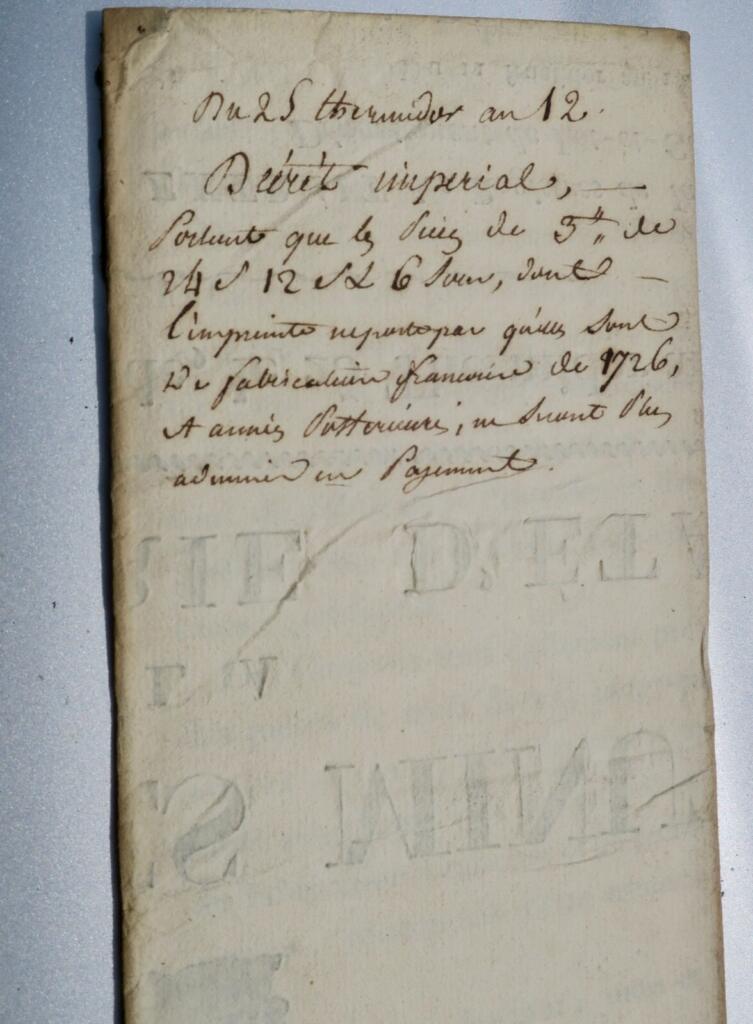 Du 25 thermidor an 12.
Décrét imperial, —
Portant que les Pieces de 3# de
24 s 12 s & 6 Sous, dont —
l'impreinte ne porte pas qu'elles Sont
De fabrication francoise de 1726,
et années Postérieures, ne Seront Plus
admises en Payement.